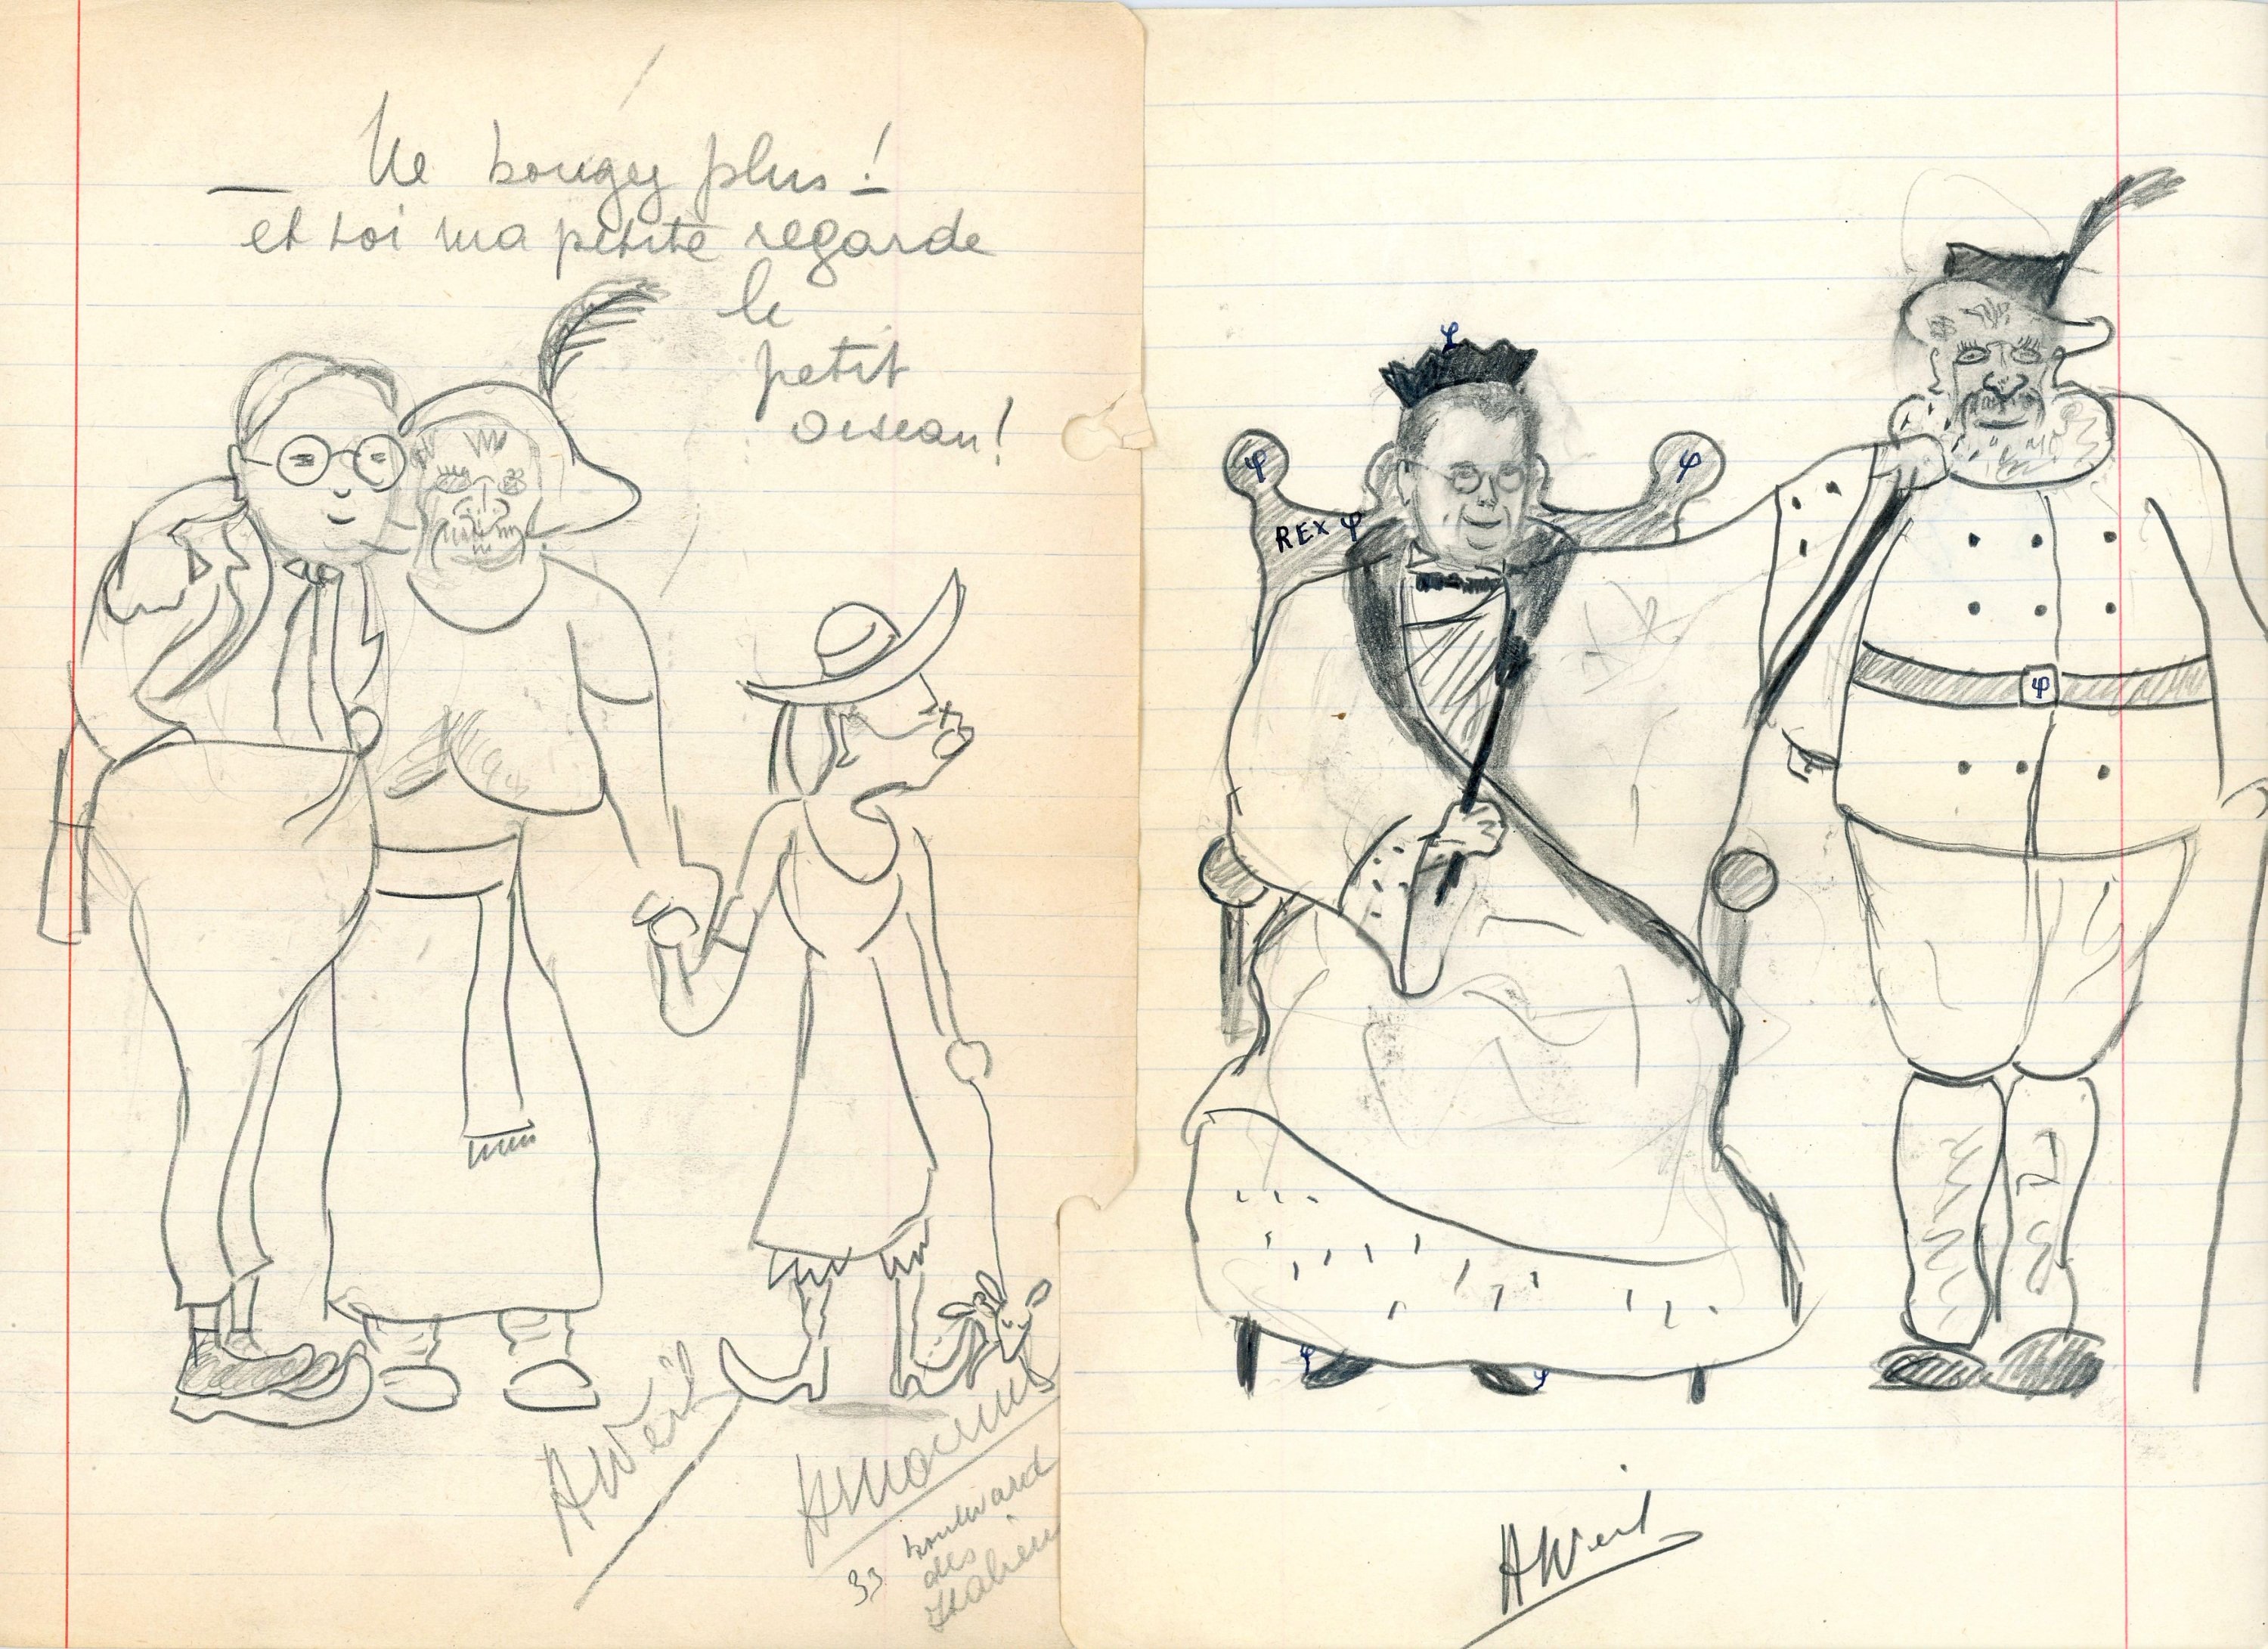 — Ne bougez plus !
et toi ma petite regarde
le
petit
oiseau !
AWeil
33 boulevard
des
Italiens
φ
φ
φ
REX φ
φ
φ
φ
AWeil